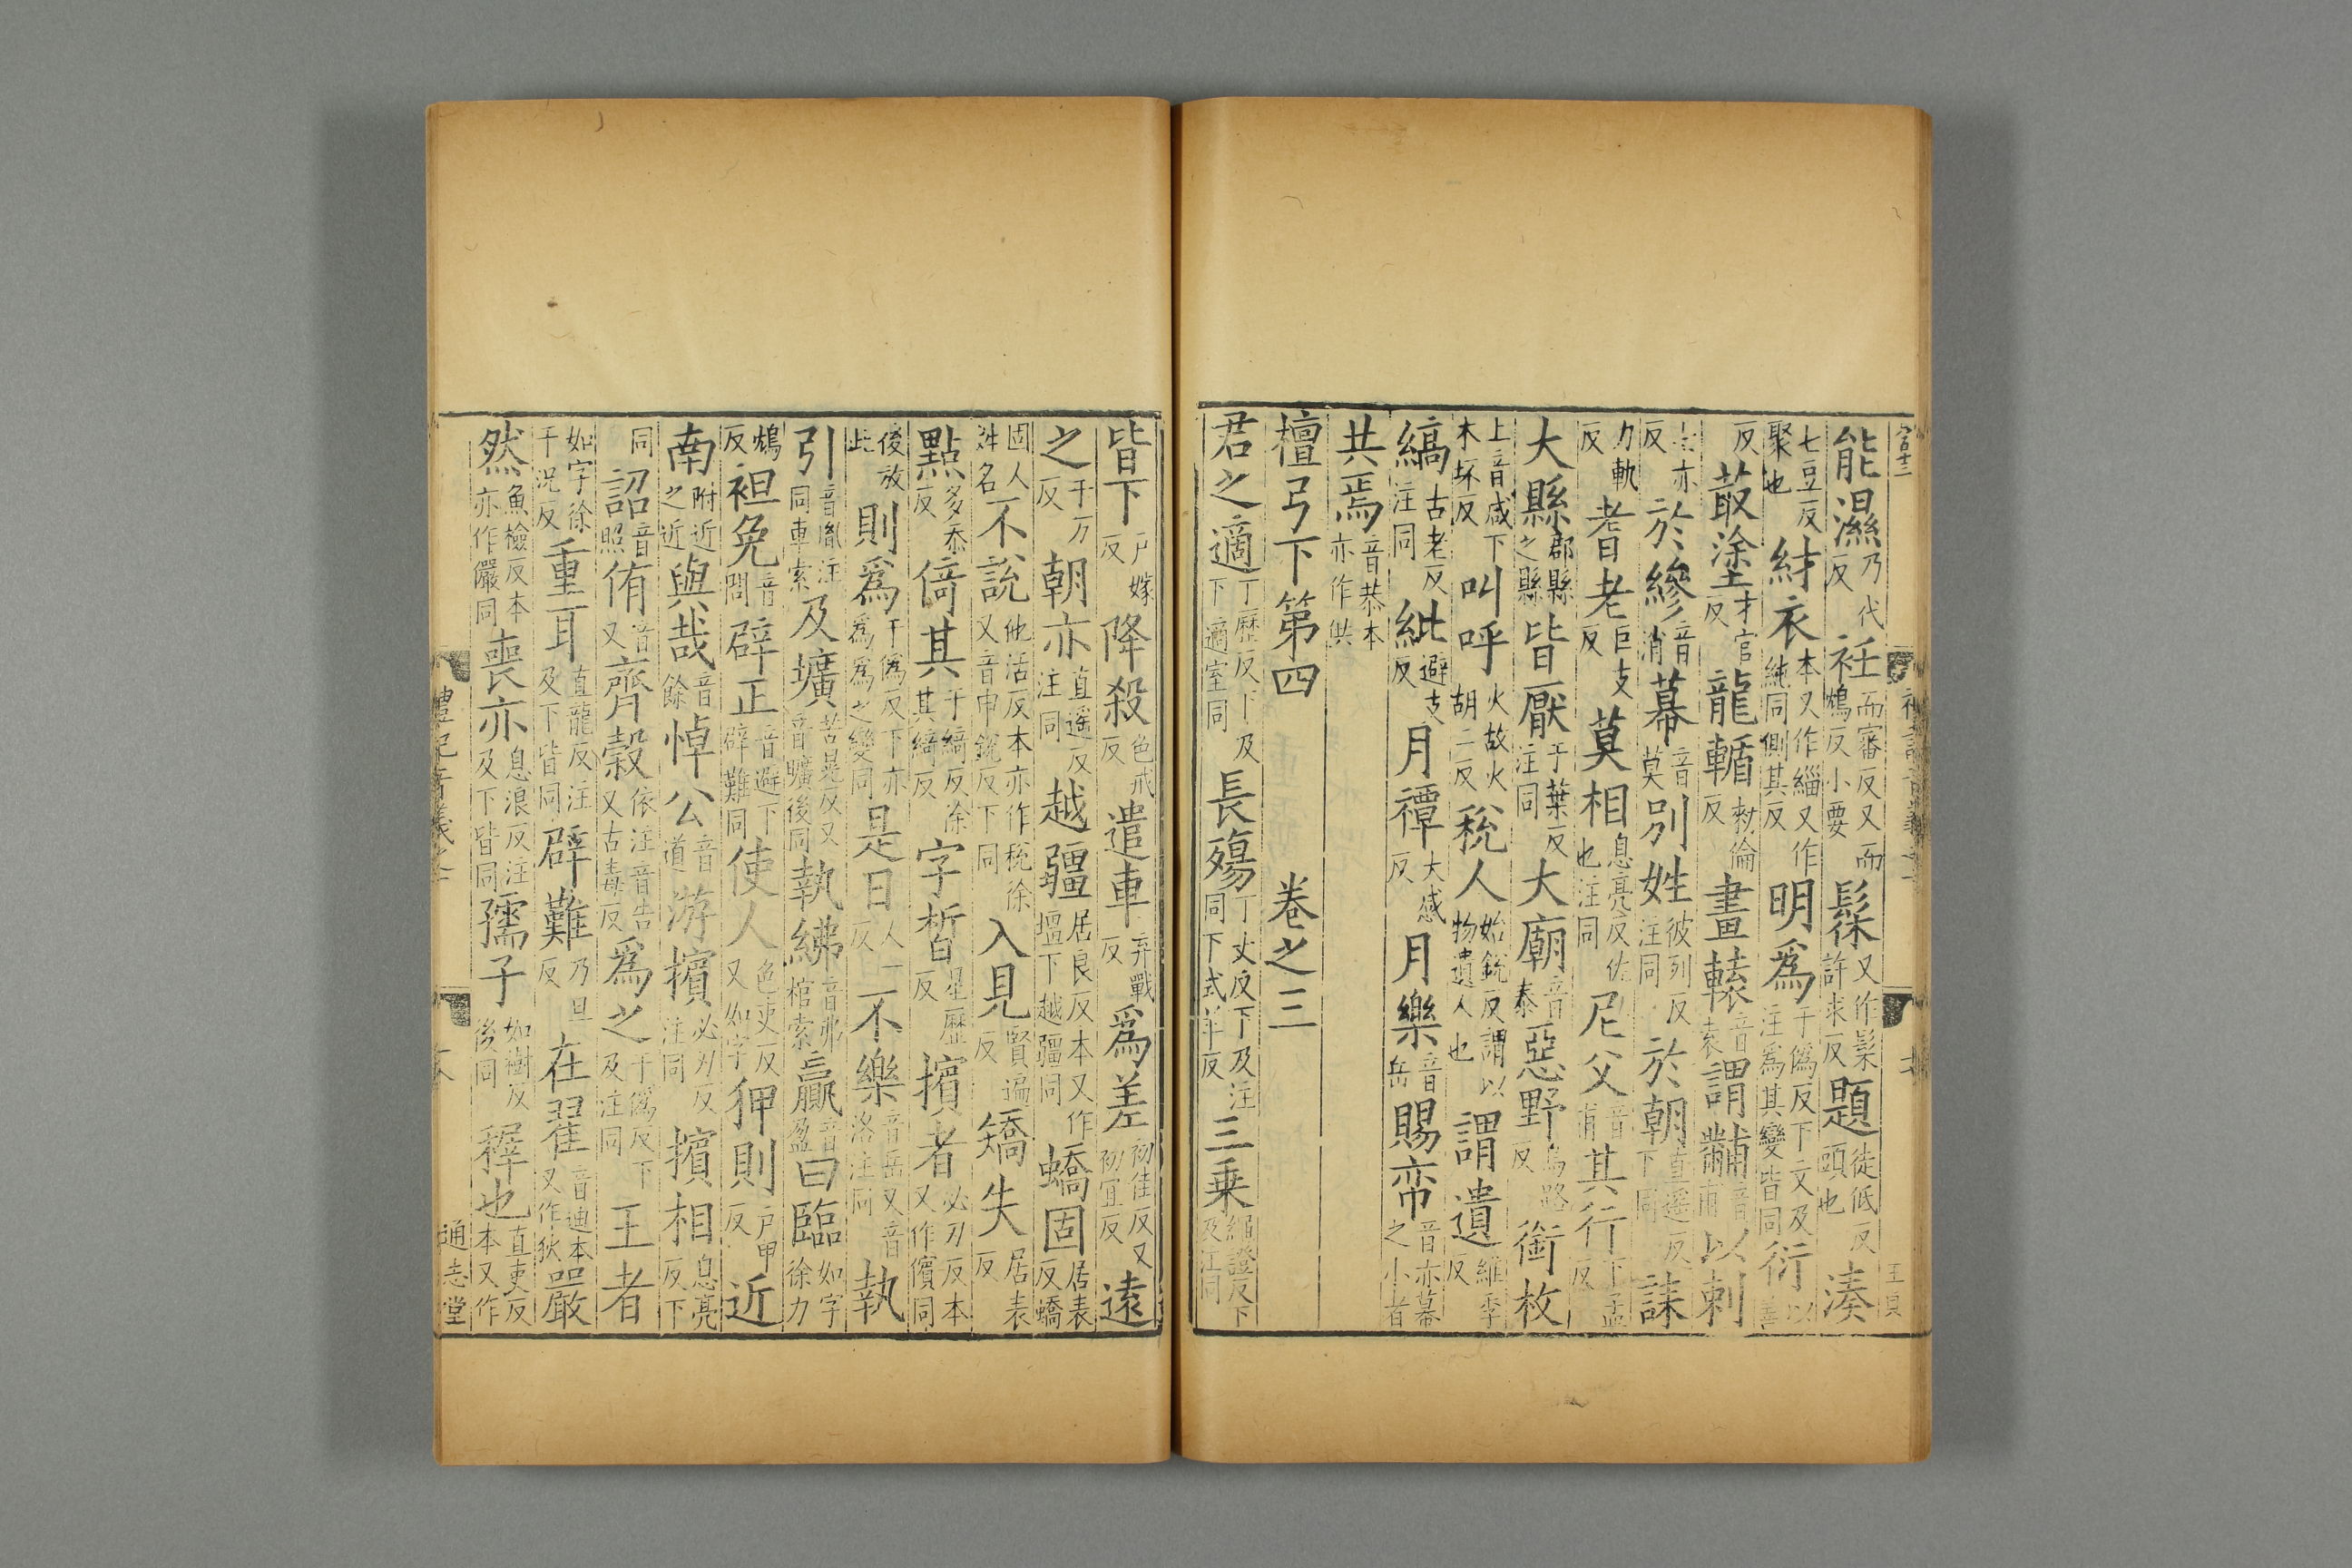 能濕乃代反衽而審反又而鴆反小要髹又作䰍許求反題徒低反頭也湊
七豆反聚也紂衣本又作緇又作純同側其反明爲于僞反下文及注爲其變皆同衍以善
反菆塗才官反龍輴敕倫反畫轅音袁謂黼音甫以刺
七亦反於縿音消幕音莫別姓彼列反注同於朝直遥反下同誄
力軌反耆老巨支反莫相息亮反佐也注同尼父音甫其行下孟反
大縣郡縣之縣皆厭于葉反注同大廟音泰惡野烏路反銜枚
上音咸下木坏反叫呼火故火胡二反稅人始銳反謂以物遺人也謂遺維季反
縞古老反注同紕避支反月禫大感反月樂音岳賜帟音亦幕之小者
共焉音恭本亦作供
檀弓下第四　卷之三
君之適丁歷反下及下適室同長殤丁丈反下及注同下式羊反三乘繩證反下及注同
皆下户嫁反降殺色戒反遣車弃戰反爲差初佳反又初宜反遠
之于万反朝亦直遥反注同越疆居良反本又作壇下越疆同蟜固居表反蟜
固人姓名不說他活反本亦作稅徐又音申銳反下同入見賢遍反矯失居表反
點多忝反倚其于綺反徐其綺反字晳星歷反擯者必刃反本又作儐同
後放此則爲于僞反下亦爲爲之變同是日人一反不樂音岳又音洛注同執
引音胤注同車索及壙苦晃反又音曠後同執紼音弗棺索贏音盈曰臨如字徐力
鴆反袒免音問辟正音避下辟難同使人色吏反又如字狎則户甲反近
南附近之近與哉音餘悼公音道游擯必刃反注同擯相息亮反下
同詔音照侑音又齊穀依注音告又古毒反爲之于僞反下及注同王者
如字徐于况反重耳直龍反注及下皆同辟難乃旦反在翟音迪本又作狄嚴
然魚檢反本亦作儼同喪亦息浪反注及下皆同孺子如樹反後同穉也直吏反本又作
禮記音義之一
通志堂